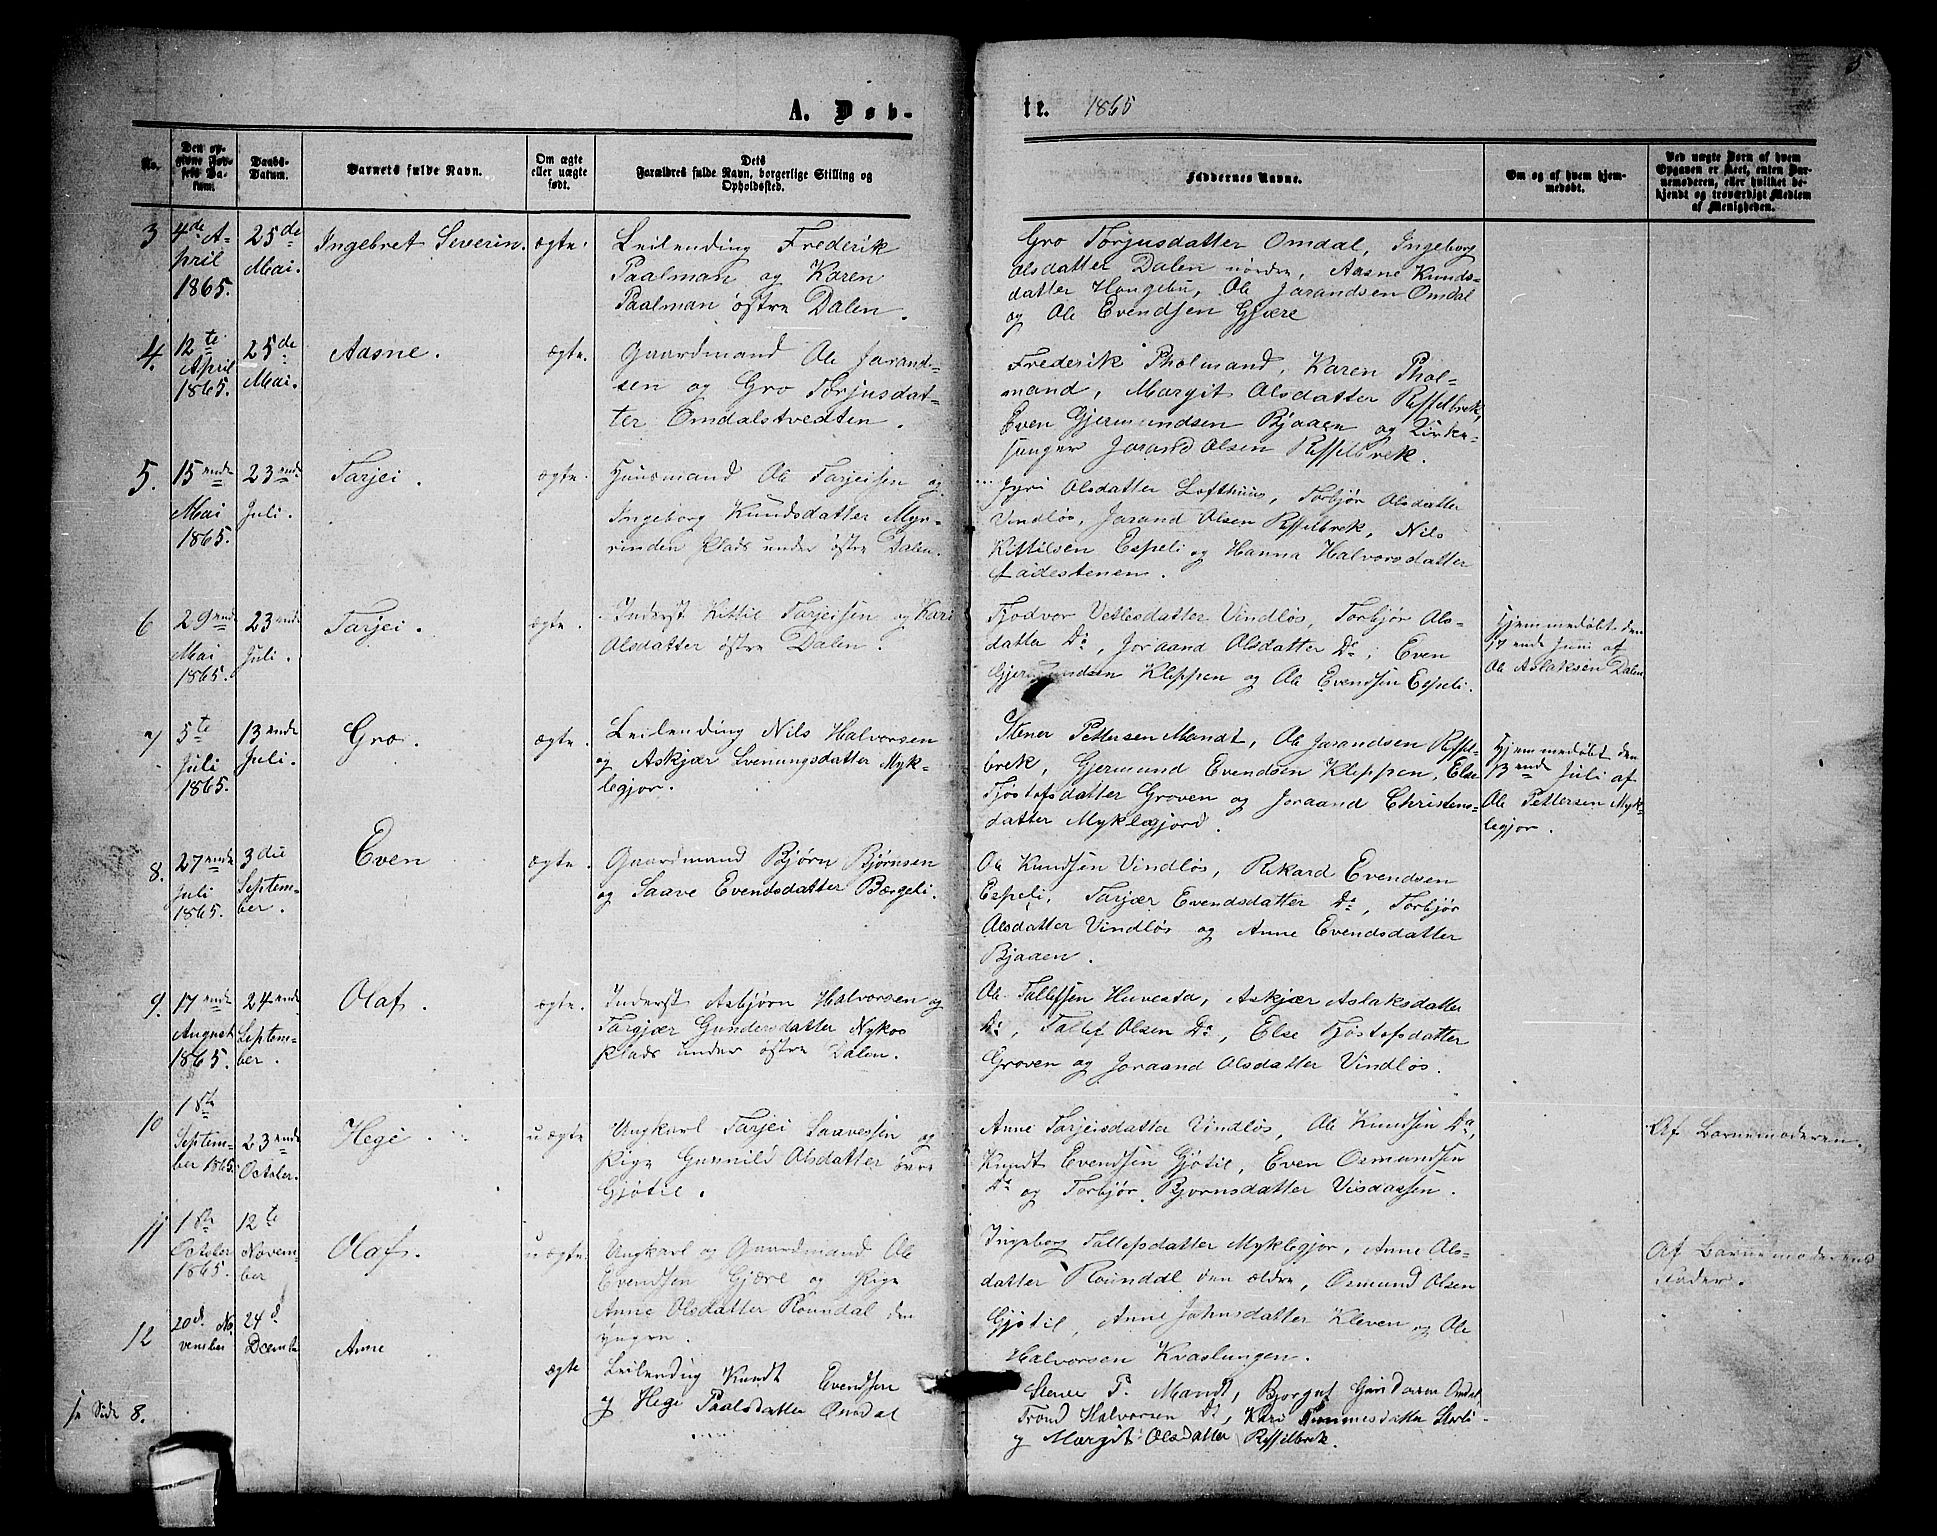 A. Døb-
te. 1865
5
No.
Den opgivne Fødsels Datum.
Daabs-Datum.
Barnets fulde Navn.
Om ægte eller uægte født.
Dets Forældres fulde Navn, borgerlige Stilling og Opholdssted.
Faddernes Navne.
Om og af hvem hjemmedøbt.
Ved uægte Børn af hvem Opgaven er skeet, enten Barnemoderen, eller hvilket bekjendt og troværdigt Medlem af Menigheden.
3
4de A-
pril
1865.
25de
Mai.
Ingebret Severin.
ægte.
Leilending Frederik
Paalman og Karen
Paalman østre Dalen.
Gro Torjusdatter Omdal, Ingeborg
Olsdatter Dalen nordre, Aasne Knuds-
datter Haugebu, Ole Jorandsen Omdal
og Ole Evendsen Gjære
4.
12te
April
1865.
25de
Mai.
Aasne.
ægte.
Gaardmand Ole Jorand-
sen og Gro Torjusdat-
ter Omdalstvedten.
Frederik Pholmand, Karen Phol-
mand, Margit Olsdatter Rffelbrek,
Even Gjermundsen Bjaaen og Kirke-
sanger Jorand Olsen Rffelbrek.
5.
15ende
Mai
1865.
23ende
Juli.
Tarjei.
ægte.
Huusmand Ole Tarjeisen og
Ingeborg Knudsdatter Myr-
vinden Plads under østre Dalen.
Gyri Olsdatter Lofthuus, Torbjør Olsdatter
Vindløs, Jorand Olsen Rffelbrek, Nils
Kittilsen Espeli og Hanna Halvorsdatter
Ladestenen.
6
29ende
Mai
1865.
23ende
Juli.
Tarjei.
ægte.
Inderst Kittil Tarjeisen og Kari
Olsdatter østre Dalen.
Tjodvor Vetlesdatter Vindløs, Torbjør Ols-
datter Do, Joraand Olsdatter Do, Even
Gjermundsen Kleppen og Ole Evendsen Espeli.
Hjemmedøbt den
17ende Juni af
Ole Aslaksen Dalen
7
5te
Juli
1865.
13ende
Juli.
Gro.
ægte.
Leilending Nils Halvorsen
og Askjær Svenungsdatter Myk-
legjor.
Stener Pettersen Mandt, Ole Jorandsen Rffel-
brek, Gjermund Evendsen Kleppen, Else
Tjøstofsdatter Groven og Joraand Christens-
datter Myklegjord.
Hjemmedøbt den
13ende Juli af
Ole Pettersen Myk-
legjor.
8.
27ende
Juli
1865.
3die
Septem-
ber.
Even
ægte.
Gaardmand Bjørn Bjørnsen
og Saave Evendsdatter Bergeli.
Ole Knudsen Vindløs, Rikard Evendsen
Espeli, Tarjær Evendsdatter Do, Torbjør
Olsdatter Vindløs og Anne Evendsdatter
Bjaaen.
9.
17ende
August
1865.
24ende
Septem-
ber.
Olaf.
ægte.
Inderst Asbjørn Halvorsen og
Targjær Gundersdatter Nykos
Plads under østre Dalen.
Ole Tallefsen Huvestad, Askjær Aslaksdatter
Do, Tallef Olsen Do, Else Tjøstofsdatter
Groven og Joraand Olsdatter Vindløs.
10
1ste
Septem-
ber 1865.
23ende
October.
Hege.
uægte
Ungkarl Tarjei Saavessen og
Pige Gunnild Olsdatter øvre
Gjøtil.
Anne Tarjeisdatter Vindløs, Ole Knudsen Do,
Knudt Evendsen Gjøtil, Even Osmundsen
Do og Torbjør Bjornsdatter Visdassen.
Af Barnemoderen.
11
1ste
October
1865.
12te
Novem-
ber
Olaf.
uægte.
Ungkarl og Gaardmand Ole
Evendsen Gjære og Pige
Anne Olsdatter Roundal den
yngre.
Ingeborg Tallefsdatter Myklegjor, Anne Ols-
datter Roundal den ældre, Osmund Olsen
Gjøtil, Anne Johnsdatter Kleven og Ole
Halvorsen Kvaslungen.
Af Barnemoderens
Fader.
12
20d. No-
vember
24d
Decembr
Anne
ægte
Leilending Knudt Evendsen
og Hege Paalsdatter Omdal
Stener P. Mandt, Bjorguf Gundersen Omdal
Trond Halvorsen Do, Kari Tommesdatter Storli
og Margit Olsdatter Rffelbrek.
se Side 8.